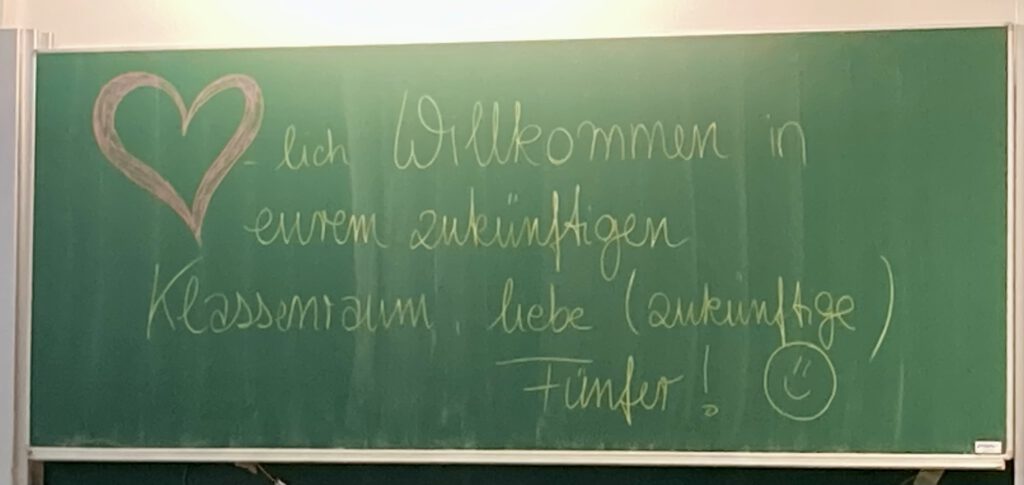 -lich Willkommen in
eurem zukünftigen
Klassenraum, liebe (zukünftige)
Fünfer!